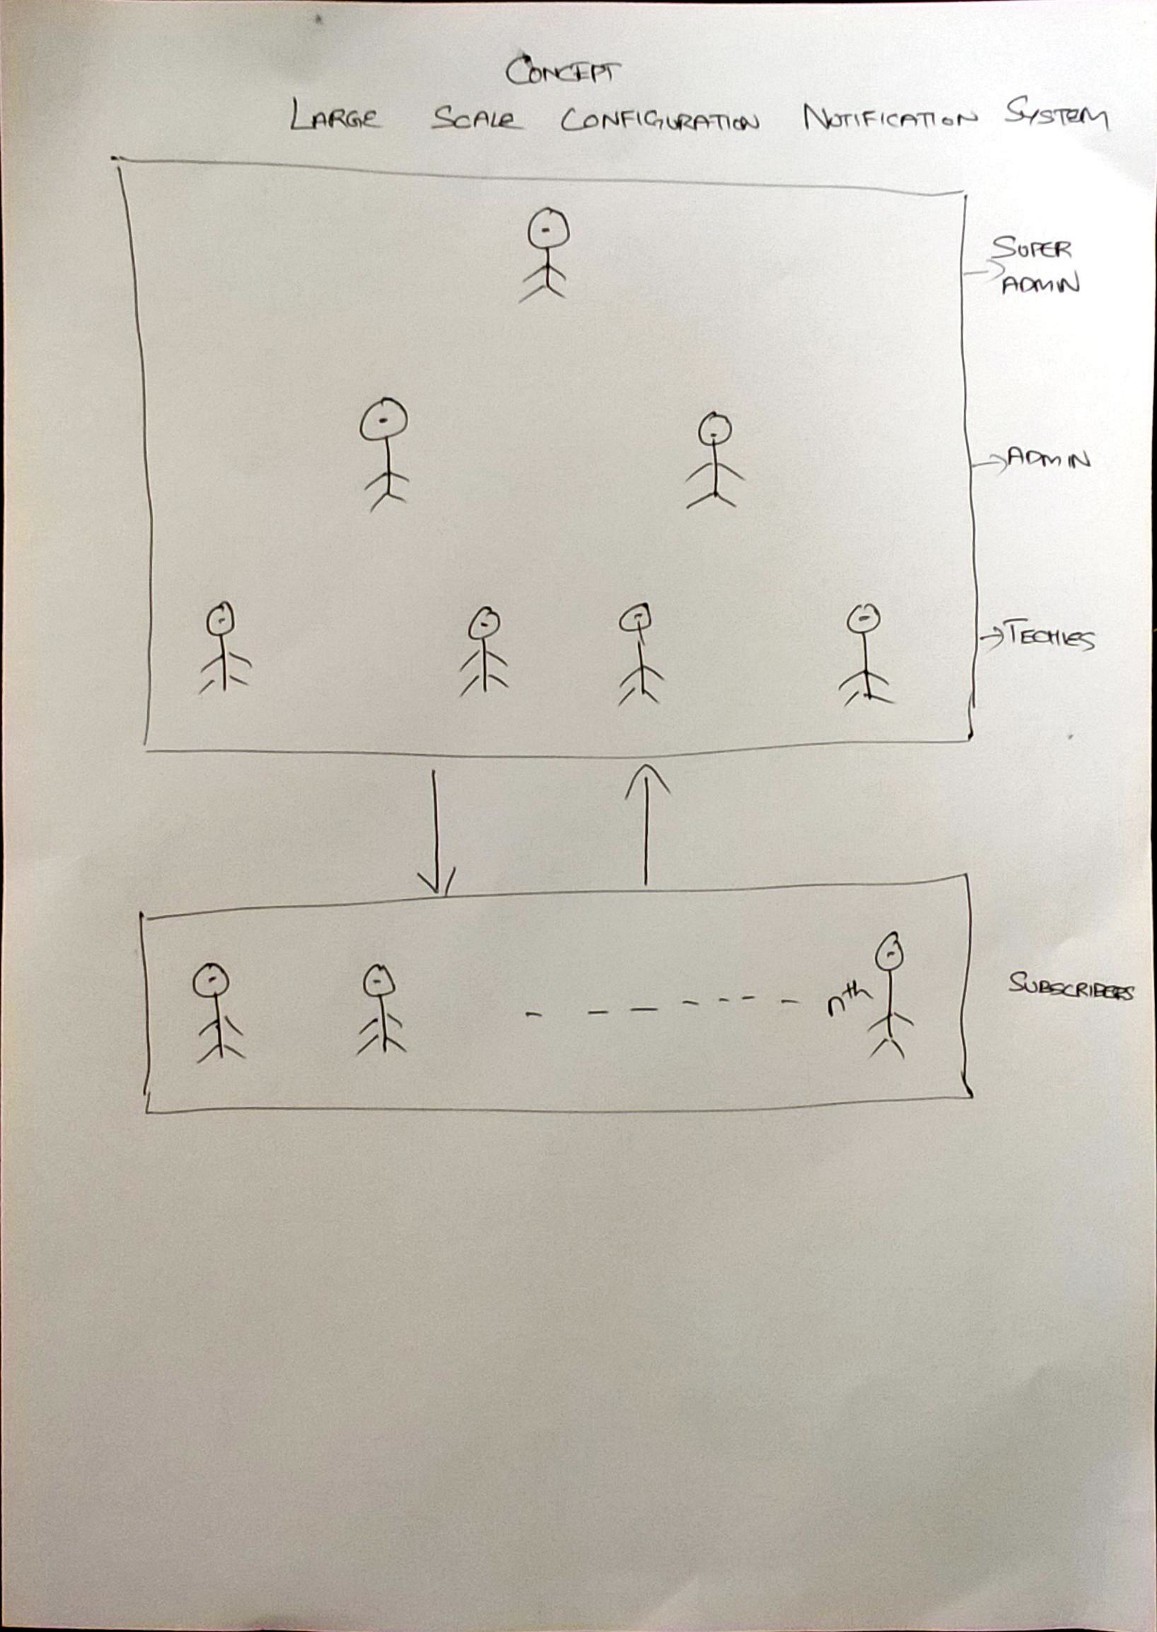 CONCEPT
LARGE SCALE CONFIGURATION NOTIFICATION SYSTEM
SUPER
ADMIN
ADMIN
TECHIES
nth
SUBSCRIBERS